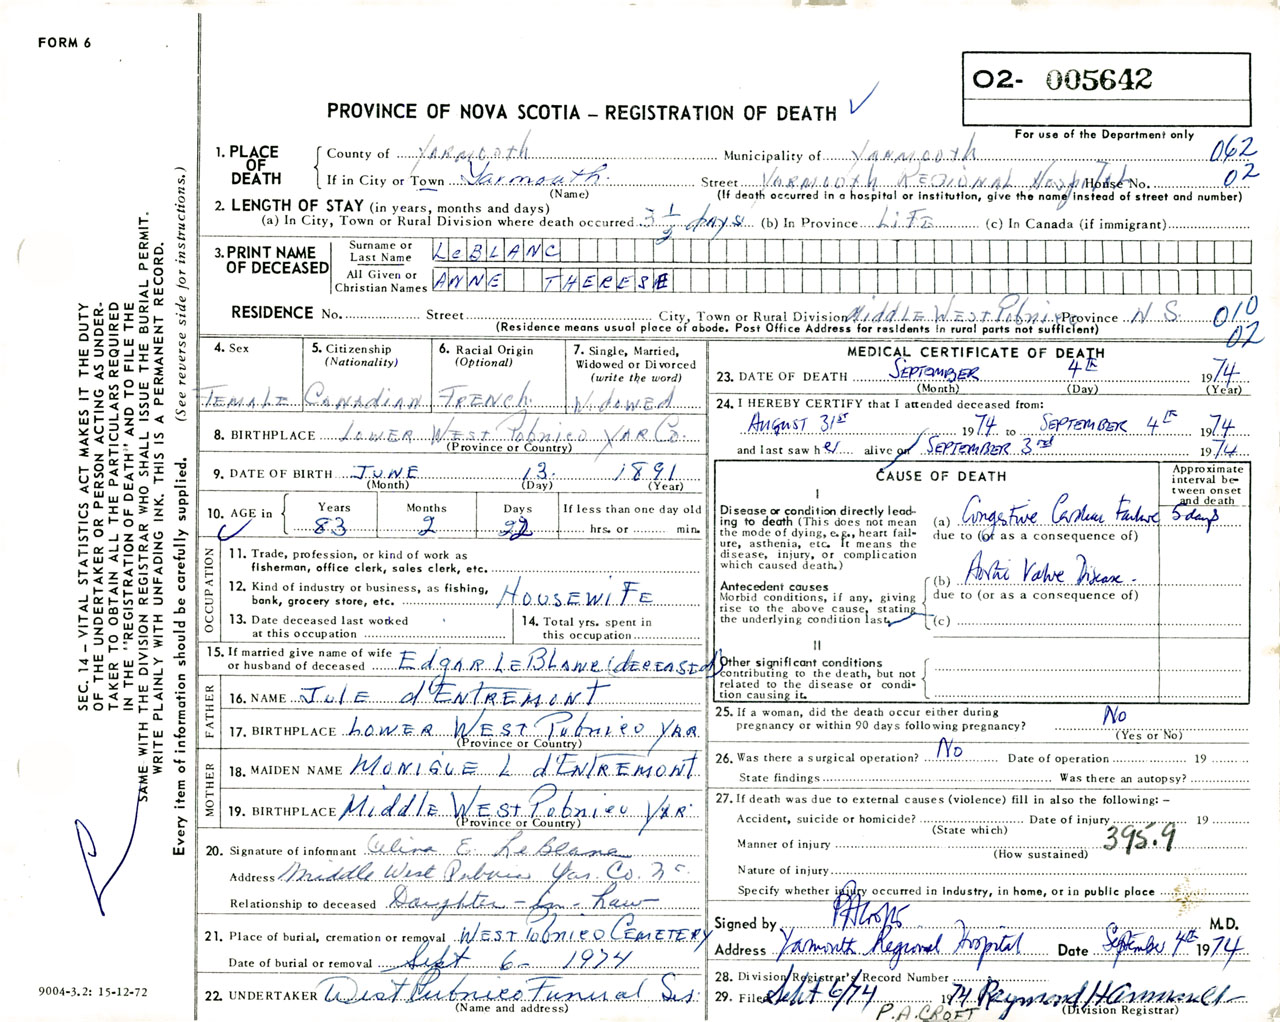 FORM 6
O2- 005642
PROVINCE OF NOVA SCOTIA – REGISTRATION OF DEATH ✓
For use of the Department only
062
02
1. PLACE OF DEATH
County of Yarmouth Municipality of Yarmouth
If in City or Town Yarmouth. Street Yarmouth Regional Hospital House No.
(Name) (If death occurred in a hospital or institution, give the name instead of street and number)
2. LENGTH OF STAY (in years, months and days)
(a) In City, Town or Rural Division where death occurred 3 1/2 days (b) In Province Life (c) In Canada (if immigrant)
3. PRINT NAME OF DECEASED
Surname or Last Name LeBLANC
All Given or Christian Names ANNE THERESE
RESIDENCE No. Street City, Town or Rural Division Middle West Pubnico Province N S.
010
02
(Residence means usual place of abode. Post Office Address for residents in rural parts not sufficient)
4. Sex
Female
5. Citizenship (Nationality)
Canadian
6. Racial Origin (Optional)
French
7. Single, Married, Widowed or Divorced (write the word)
Widowed
8. BIRTHPLACE Lower West Pubnico Yar Co.
(Province or Country)
9. DATE OF BIRTH June 13 1891
(Month) (Day) (Year)
10. AGE in
Years Months Days If less than one day old
83 2 22 hrs. or min.
OCCUPATION
11. Trade, profession, or kind of work as
fisherman, office clerk, sales clerk, etc.
12. Kind of industry or business, as fishing,
bank, grocery store, etc. HOUSEWIFE
13. Date deceased last worked
at this occupation
14. Total yrs. spent in
this occupation
15. If married give name of wife
or husband of deceased Edgar LeBlanc (deceased)
FATHER
16. NAME Jule d'Entremont
17. BIRTHPLACE Lower West Pubnico Yar
(Province or Country)
MOTHER
18. MAIDEN NAME Monique L d'Entremont
19. BIRTHPLACE Middle West Pubnico Yar.
(Province or Country)
20. Signature of informant Celina E. LeBlanc
Address Middle West Pubnico Yar. Co. NS
Relationship to deceased Daughter-in-Law
21. Place of burial, cremation or removal West Pubnico Cemetery
Date of burial or removal Sept 6 - 1974
22. UNDERTAKER West Pubnico Funeral
(Name and address)
MEDICAL CERTIFICATE OF DEATH
23. DATE OF DEATH September 4th 1974
(Month) (Day) (Year)
24. I HEREBY CERTIFY that I attended deceased from:
August 31st 1974 to September 4th 1974
and last saw her alive on September 3rd 1974
CAUSE OF DEATH
Approximate interval between onset and death
I
Disease or condition directly leading to death (This does not mean
the mode of dying, e.g., heart failure, asthenia, etc. It means the
disease, injury, or complication
which caused death.)
(a) Congestive Cardiac Failure 5 days
due to (or as a consequence of)
Antecedent causes
Morbid conditions, if any, giving
rise to the above cause, stating
the underlying condition last
(b) Aortic Valve Disease.
due to (or as a consequence of)
(c)
II
Other significant conditions
contributing to the death, but not
related to the disease or condition causing it.
25. If a woman, did the death occur either during
pregnancy or within 90 days following pregnancy? No
(Yes or No)
26. Was there a surgical operation? No Date of operation 19
State findings Was there an autopsy?
27. If death was due to external causes (violence) fill in also the following: –
Accident, suicide or homicide? Date of injury 19
(State which)
Manner of injury 395.9
(How sustained)
Nature of injury
Specify whether injury occurred in Industry, in home, or in public place
Signed by PACroft M.D.
Address Yarmouth Regional Hospital Date September 4th 1974
28. Division Registrar's Record Number
29. Filed Sept 6/74 1974 Raymond
P. A. CROFT (Division Registrar)
SEC. 14 – VITAL STATISTICS ACT MAKES IT THE DUTY
OF THE UNDERTAKER OR PERSON ACTING AS UNDER-
TAKER TO OBTAIN ALL THE PARTICULARS REQUIRED
IN THE "REGISTRATION OF DEATH" AND TO FILE THE
SAME WITH THE DIVISION REGISTRAR WHO SHALL ISSUE THE BURIAL PERMIT.
WRITE PLAINLY WITH UNFADING INK. THIS IS A PERMANENT RECORD.
Every item of information should be carefully supplied. (See reverse side for instructions.)
9004-3.2: 15-12-72